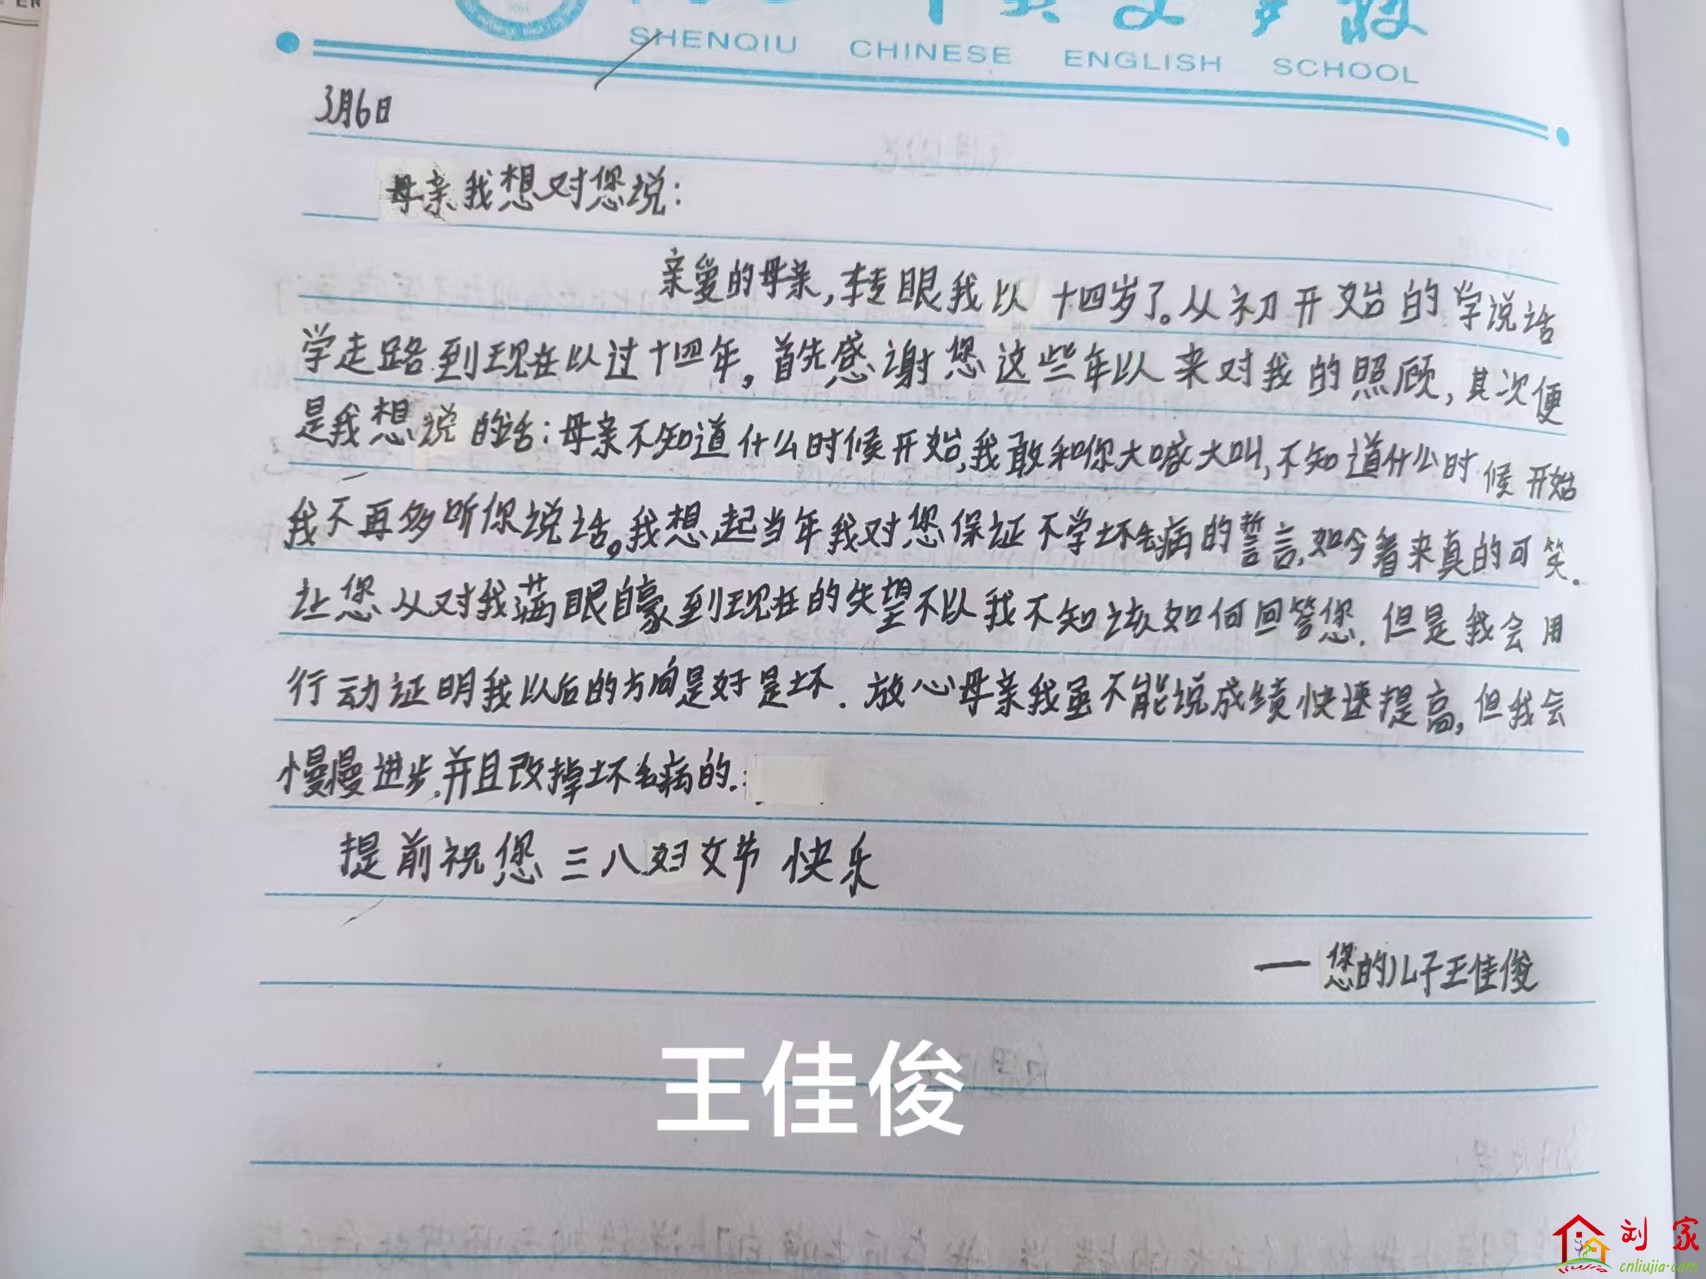 SHENQIU CHINESE ENGLISH SCHOOL
3月6日
母亲我想对您说:
亲爱的母亲,转眼我以十四岁了。从初开始的学说话
学走路到现在以过十四年。首先感谢您这些年以来对我的照顾,其次便
是我想说的话:母亲不知道什么时候开始,我敢和你大喊大叫,不知道什么时候开始
我不再多听你说话。我想起当年我对您保证不学坏毛病的誓言,如今看来真的可笑。
让您从对我满眼自豪到现在的失望不以我不知该如何回答您.但是我会用
行动证明我以后的方向是好是坏.放心母亲我虽不能说成绩快速提高,但我会
慢慢进步,并且改掉坏毛病的.
提前祝您三八妇女节快乐
—您的儿子王佳俊
王佳俊
刘家
cnliujia.com